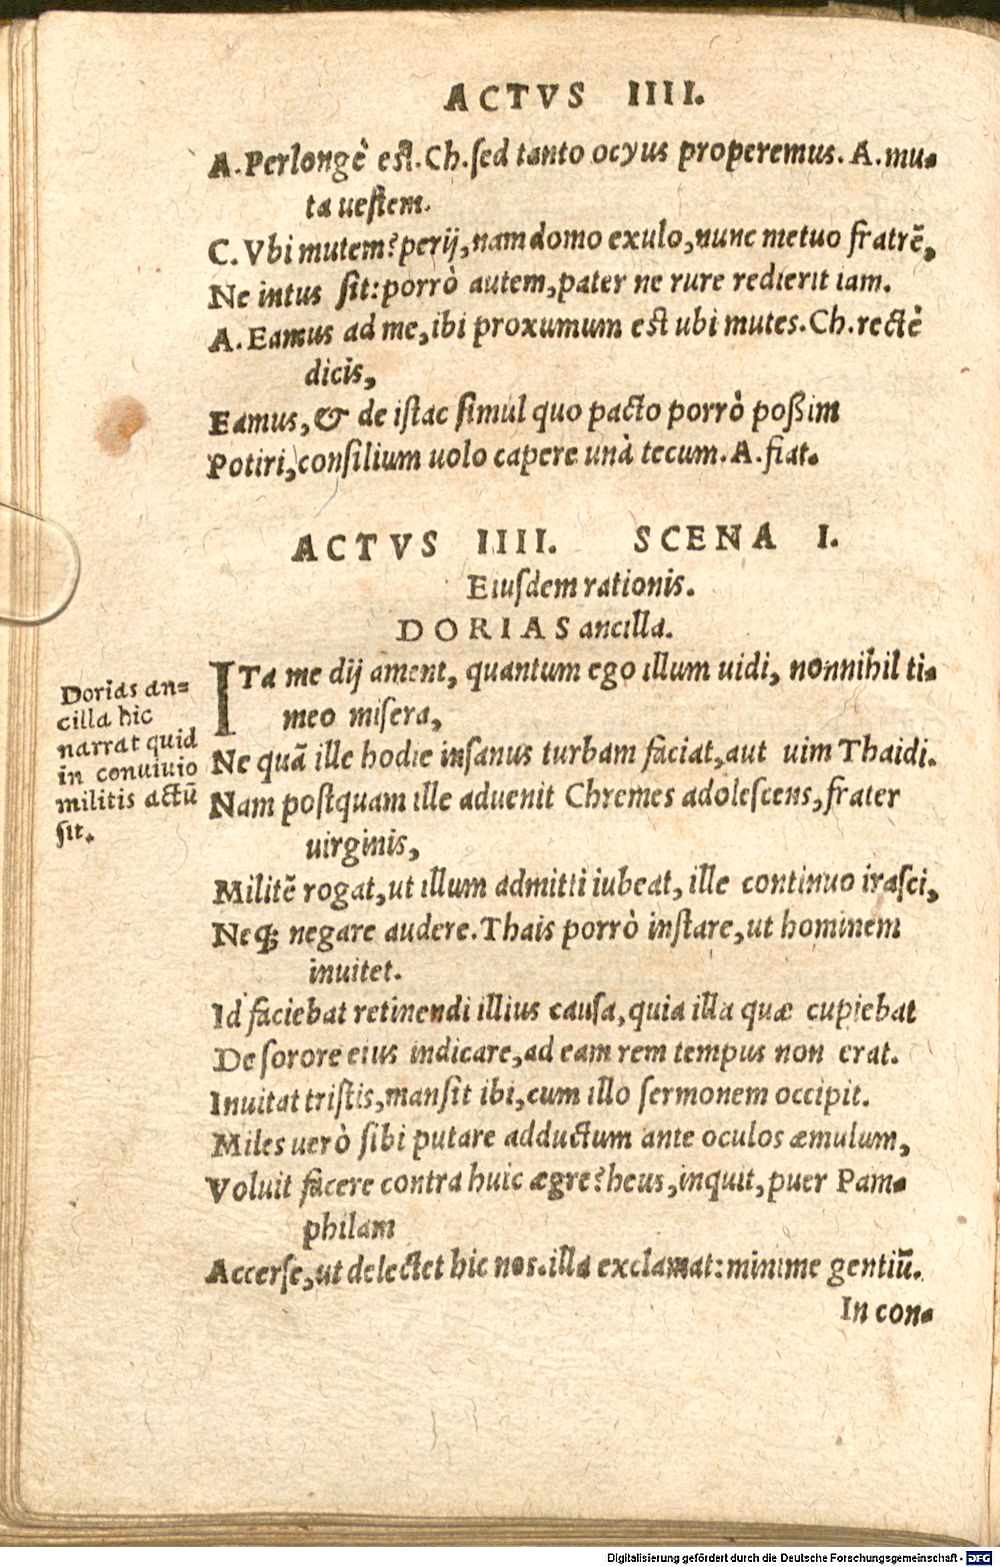 ACTVS IIII.
A. Perlongè est. Ch. sed tanto ocyus properemus. A. mu-
ta uestem.
C. Vbi mutem? perij, nam domo exulo, nunc metuo fratrē,
Ne intus sit: porrò autem, pater ne rure redierit iam.
A. Eamus ad me, ibi proxumum est ubi mutes. Ch. rectè
dicis,
Eamus, & de istac simul quo pacto porrò poßim
Potiri, consilium uolo capere unà tecum. A. fiat.
ACTVS IIII. SCENA I.
Eiusdem rationis.
DORIAS ancilla.
ITa me dij ament, quantum ego illum uidi, nonnihil ti-
meo misera,
Ne quā ille hodie insanus turbam faciat, aut uim Thaidi.
Nam postquam ille aduenit Chremes adolescens, frater
uirginis,
Militē rogat, ut illum admitti iubeat, ille continuo irasci,
Neq; negare audere. Thais porrò instare, ut hominem
inuitet.
Id faciebat retinendi illius causa, quia illa quæ cupiebat
De sorore eius indicare, ad eam rem tempus non erat.
Inuitat tristis, mansit ibi, cum illo sermonem occipit.
Miles uerò sibi putare adductum ante oculos æmulum,
Voluit facere contra huic ægre? heus, inquit, puer Pam-
philam
Accerse, ut delectet hic nos. illa exclamat: minime gentiū.
In con-
Dorias an-
cilla hic
narrat quid
in conuiuio
militis actū
sit.
Digitalisierung gefördert durch die Deutsche Forschungsgemeinschaft - DFG